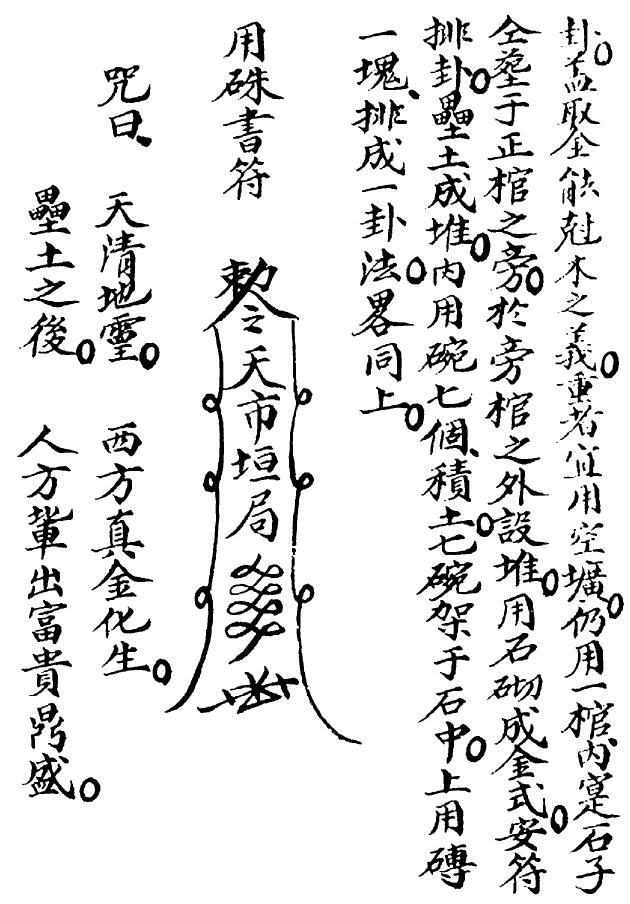 卦。蓋取金能尅木之義。重者宜用空壙。仍用一棺、内寔石子
仝塟于正棺之旁。於旁棺之外設堆。用石砌成金式。安符
排卦。壘土成堆。内用碗七個、積土。七碗架于石中。上用磚
一塊、排成一卦。法畧同上。
用硃書符
勅令天市垣局
咒曰、天清地靈。西方真金化生。
壘土之後。人方輩出富貴鼎盛。